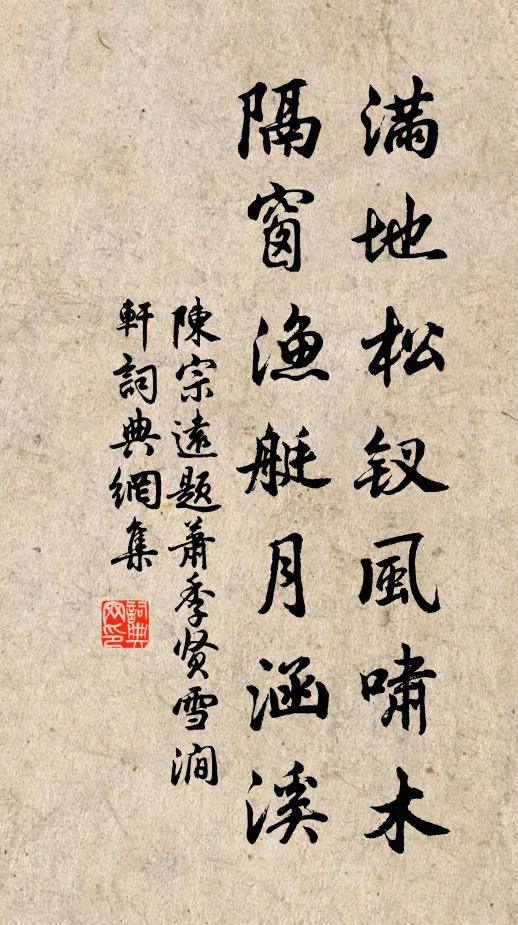 滿地松釵風嘯木
隔窗漁艇月涵溪
陳宗遠題蕭季贤雪澗
軒詞典網集
詞典网印